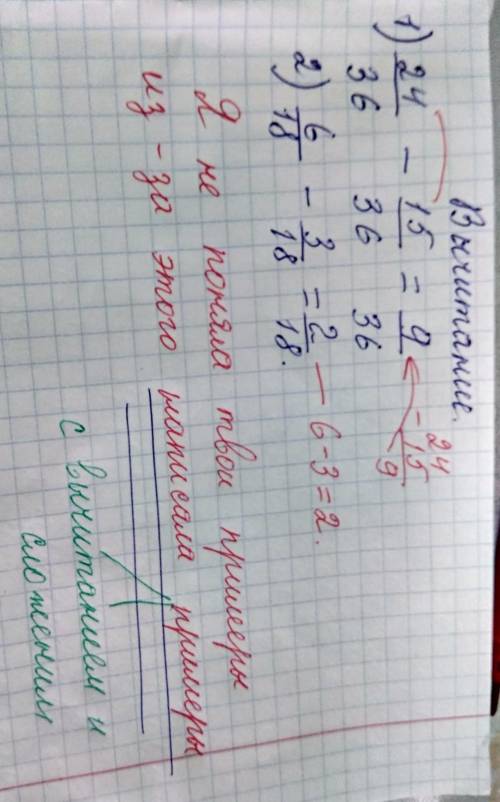 Вычитание.
1) 24/36 - 15/36 = 9/36
- 24
15
9
2) 6/18 - 3/18 = 2/18. — 6-3=2.
Я не поняла твои примееры
из-за этого написала примеры
с вычитанием и
сложенили